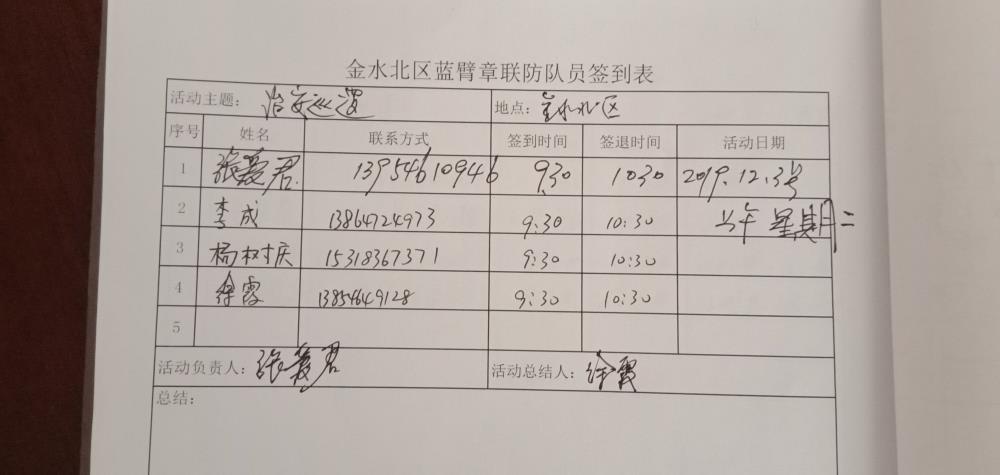 金水北区蓝臂章联防队员签到表
活动主题：治安巡逻 地点：金水北区
序号 姓名 联系方式 签到时间 签退时间 活动日期
1 张爱君 13954610946 9:30 10:30 2019.12.3号
2 李成 13864724973 9:30 10:30 上午 星期二
3 杨树庆 15318367371 9:30 10:30
4 徐霞 13854649128 9:30 10:30
5
活动负责人：张爱君 活动总结人：徐霞
总结：